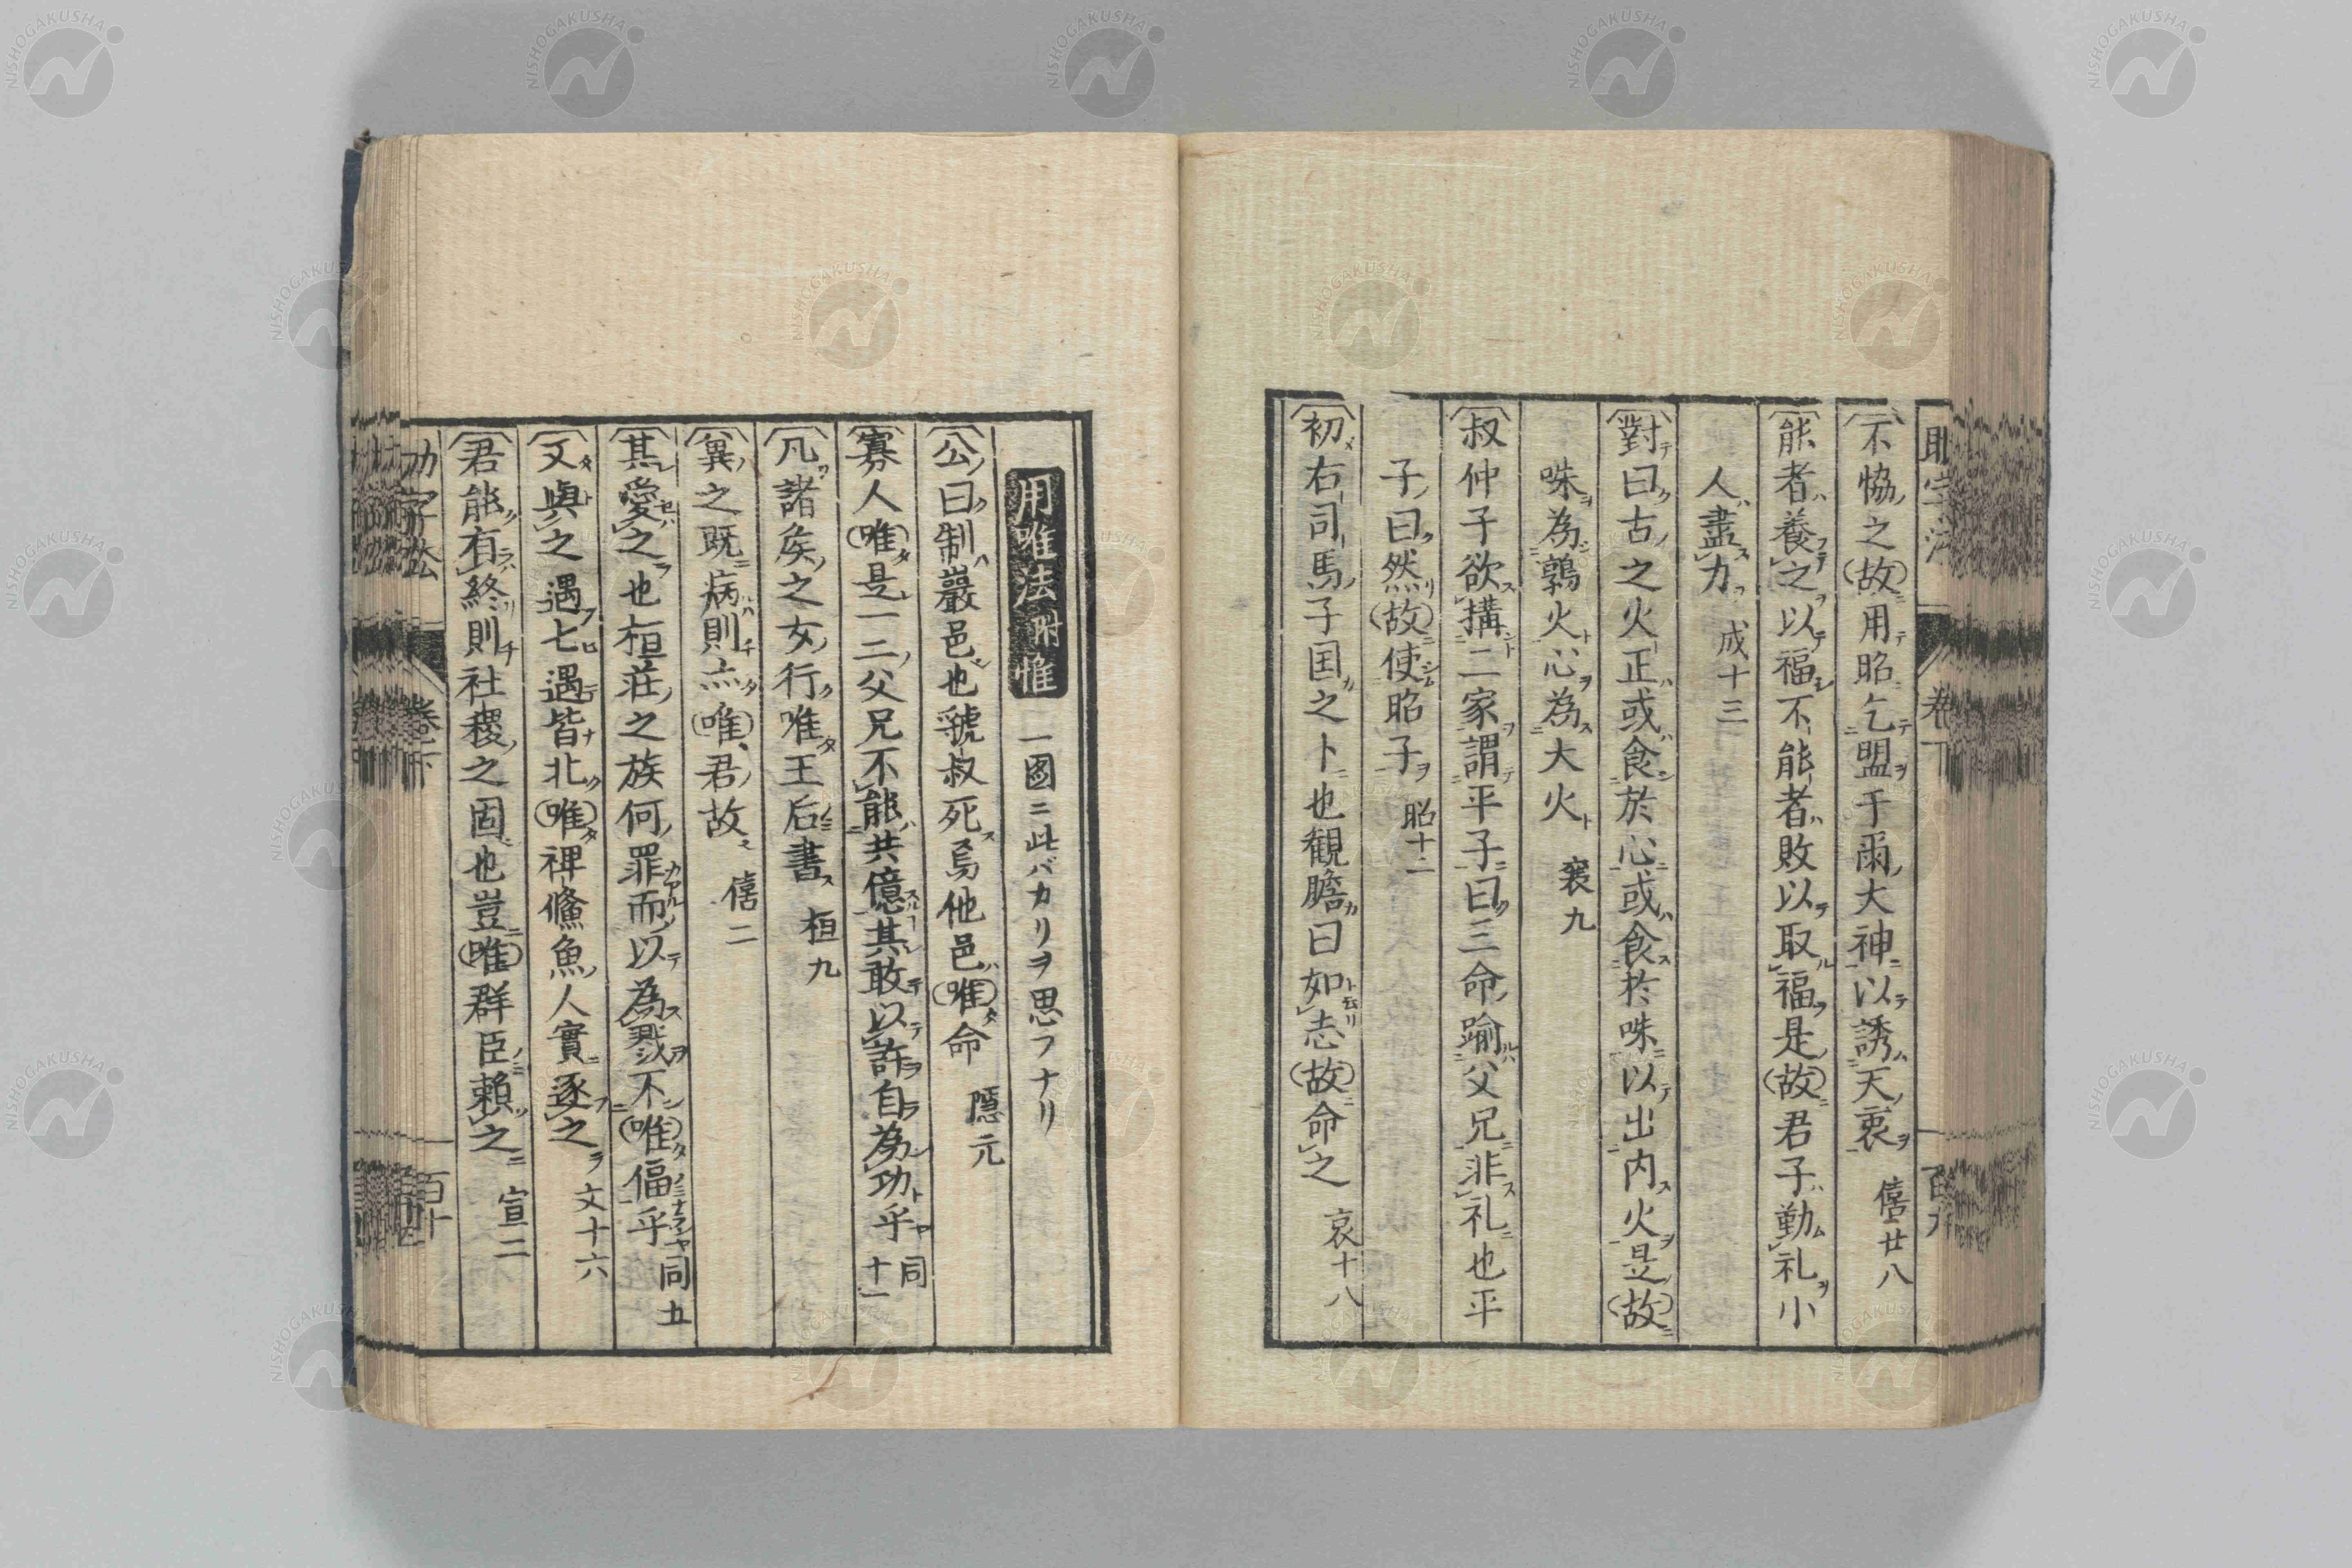 不恊之故用昭乞盟于爾大神以誘天衷 僖廿八
能者養之以福不能者敗以取福是故君子勤礼小
人盡力 成十三
對曰古之火正或食於心或食於咮以出内火是故
咮為鶉火心為大火 襄九
叔仲子欲搆二家謂平子曰三命踰父兄非礼也平
子曰然故使昭子 昭十二
初右司馬子国之卜也観瞻曰如志故命之 哀十八
用唯法附惟 一圖ニ此バカリヲ思フナリ
公曰制巖邑也虢叔死焉他邑唯命 隱元
寡人唯是一二父兄不能共億其敢以許自為功乎 同十一
凡諸矦之女行唯王后書 桓九
冀之既病則亦唯君故 僖二
其愛之也桓莊之族何罪而以為戮不唯偪乎 同五
又與之遇七遇皆北唯裨鯈魚人實逐之 文十六
君能有終則社稷之固也豈唯群臣頼之 宣二
NISHOGAKUSHA